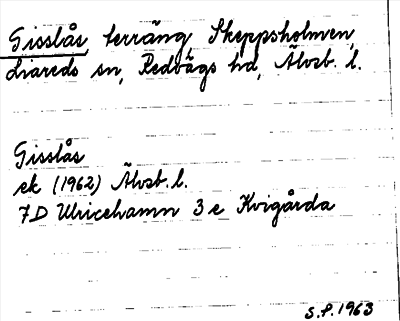 Gisslås, terräng, Skeppsholmen,
Liareds sn, Redvägs hd, Älvsb. l.
Gisslås
ek (1962) Älvsb. l.
7D Ulricehamn 3 e Kvigårda
S.P. 1963